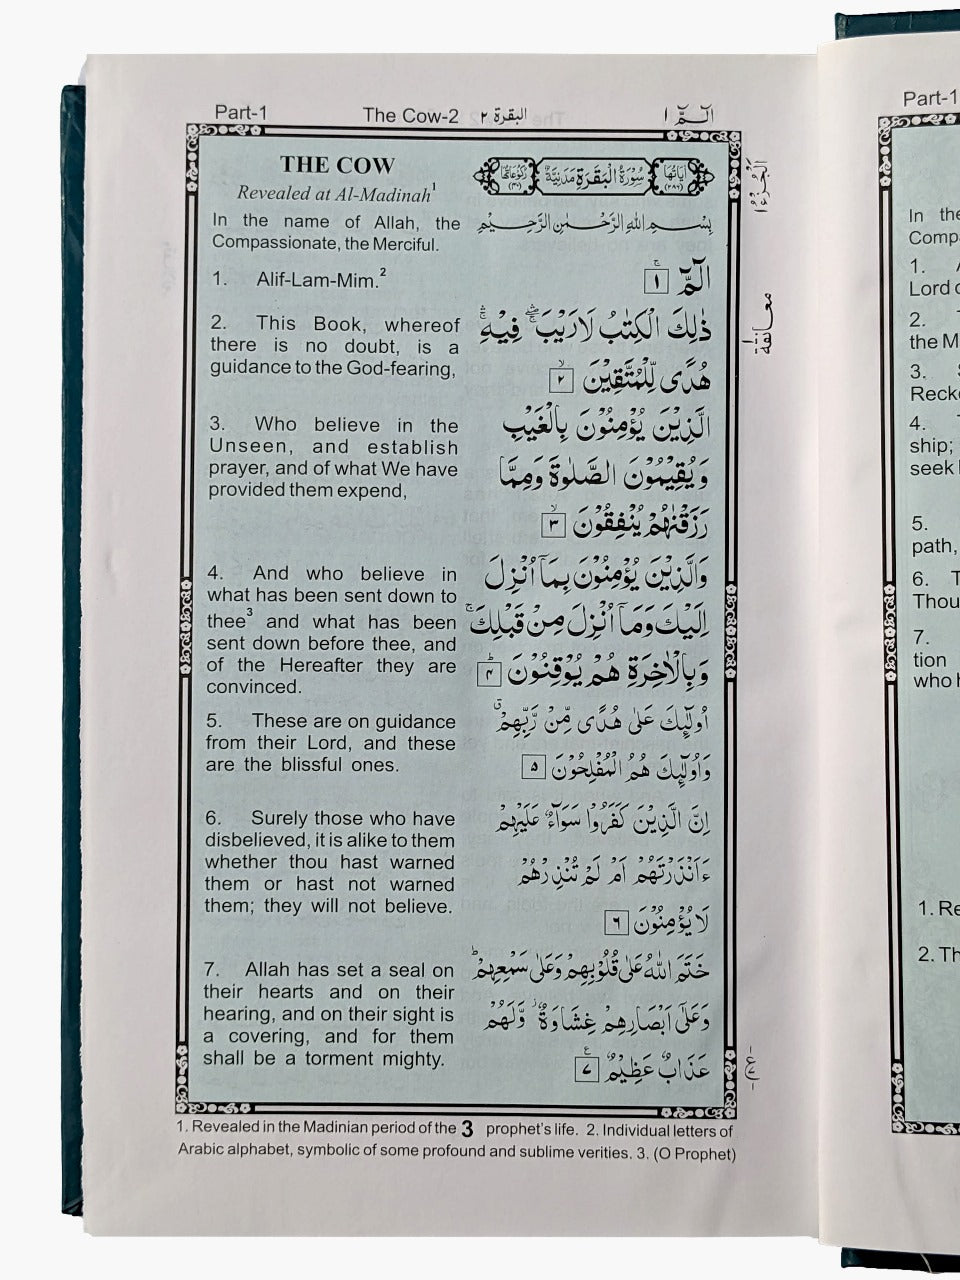 Part-1
The Cow-2 البقرة ٢
الٓمّٓ ١
THE COW
Revealed at Al-Madinah1
In the name of Allah, the
Compassionate, the Merciful.
1. Alif-Lam-Mim.2
2. This Book, whereof
there is no doubt, is a
guidance to the God-fearing,
3. Who believe in the
Unseen, and establish
prayer, and of what We have
provided them expend,
4. And who believe in
what has been sent down to
thee3 and what has been
sent down before thee, and
of the Hereafter they are
convinced.
5. These are on guidance
from their Lord, and these
are the blissful ones.
6. Surely those who have
disbelieved, it is alike to them
whether thou hast warned
them or hast not warned
them; they will not believe.
7. Allah has set a seal on
their hearts and on their
hearing, and on their sight is
a covering, and for them
shall be a torment mighty.
اٰيَاتُهَا ٢٨٦
سُوْرَةُ الْبَقَرَةِ مَدَنِيَّةٌ
رُكُوْعَاتُهَا ٤٠
بِسْمِ اللهِ الرَّحْمٰنِ الرَّحِيْمِ
الٓمّٓ ۚ ١
ذٰلِكَ الْكِتٰبُ لَا رَيْبَ ۛ فِيْهِ ۛ
هُدًى لِّلْمُتَّقِيْنَ ۙ ٢
الَّذِيْنَ يُؤْمِنُوْنَ بِالْغَيْبِ
وَيُقِيْمُوْنَ الصَّلٰوةَ وَمِمَّا
رَزَقْنٰهُمْ يُنْفِقُوْنَ ۙ ٣
وَالَّذِيْنَ يُؤْمِنُوْنَ بِمَآ اُنْزِلَ
اِلَيْكَ وَمَآ اُنْزِلَ مِنْ قَبْلِكَ ۚ
وَبِالْاٰخِرَةِ هُمْ يُوْقِنُوْنَ ؕ ٤
اُولٰٓئِكَ عَلٰى هُدًى مِّنْ رَّبِّهِمْ ۗ
وَاُولٰٓئِكَ هُمُ الْمُفْلِحُوْنَ ٥
اِنَّ الَّذِيْنَ كَفَرُوْا سَوَآءٌ عَلَيْهِمْ
ءَاَنْذَرْتَهُمْ اَمْ لَمْ تُنْذِرْهُمْ
لَا يُؤْمِنُوْنَ ٦
خَتَمَ اللهُ عَلٰى قُلُوْبِهِمْ وَعَلٰى سَمْعِهِمْ ؕ
وَعَلٰٓى اَبْصَارِهِمْ غِشَاوَةٌ ز وَّلَهُمْ
عَذَابٌ عَظِيْمٌ ع ٧
الْجُزْءُ ١
معانقة
1. Revealed in the Madinian period of the 3 prophet's life. 2. Individual letters of
Arabic alphabet, symbolic of some profound and sublime verities. 3. (O Prophet)
Part-1
In the
Comp
1.
Lord o
2.
the M
3.
Recko
4.
ship;
seek
5.
path,
6. T
Thou
7.
tion
who h
1. Re
2. Th